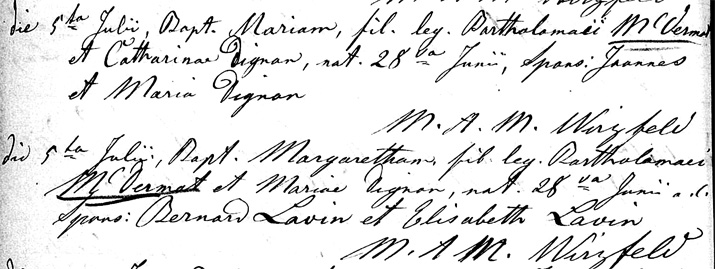 die 5ta Julii, Bapt. Mariam, fil. leg. Bartholamaei McDermot
et Catharinae Dignan, nat. 28va Junii, Spons: Joannes
et Maria Dignan
M. A. M. Wirzfeld
die 5ta Julii, Bapt. Margaretham, fil. leg. Bartholamaei
McDermot et Mariae Dignan, nat. 28va Junii a.c.
Spons: Bernard Lavin et Elisabeth Lavin
M. A M. Wirzfeld